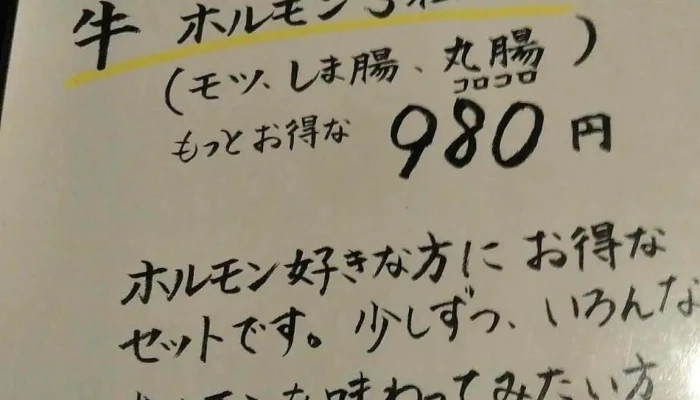 牛 ホルモン3種
(モツ、しま腸、丸腸)
コロコロ
もっとお得な 980円
ホルモン好きな方に お得な
セットです。少しずつ、いろんな
ホルモンを味わってみたい方